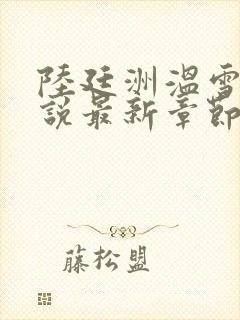 陸廷洲溫雪
說最新章節
藤松盟